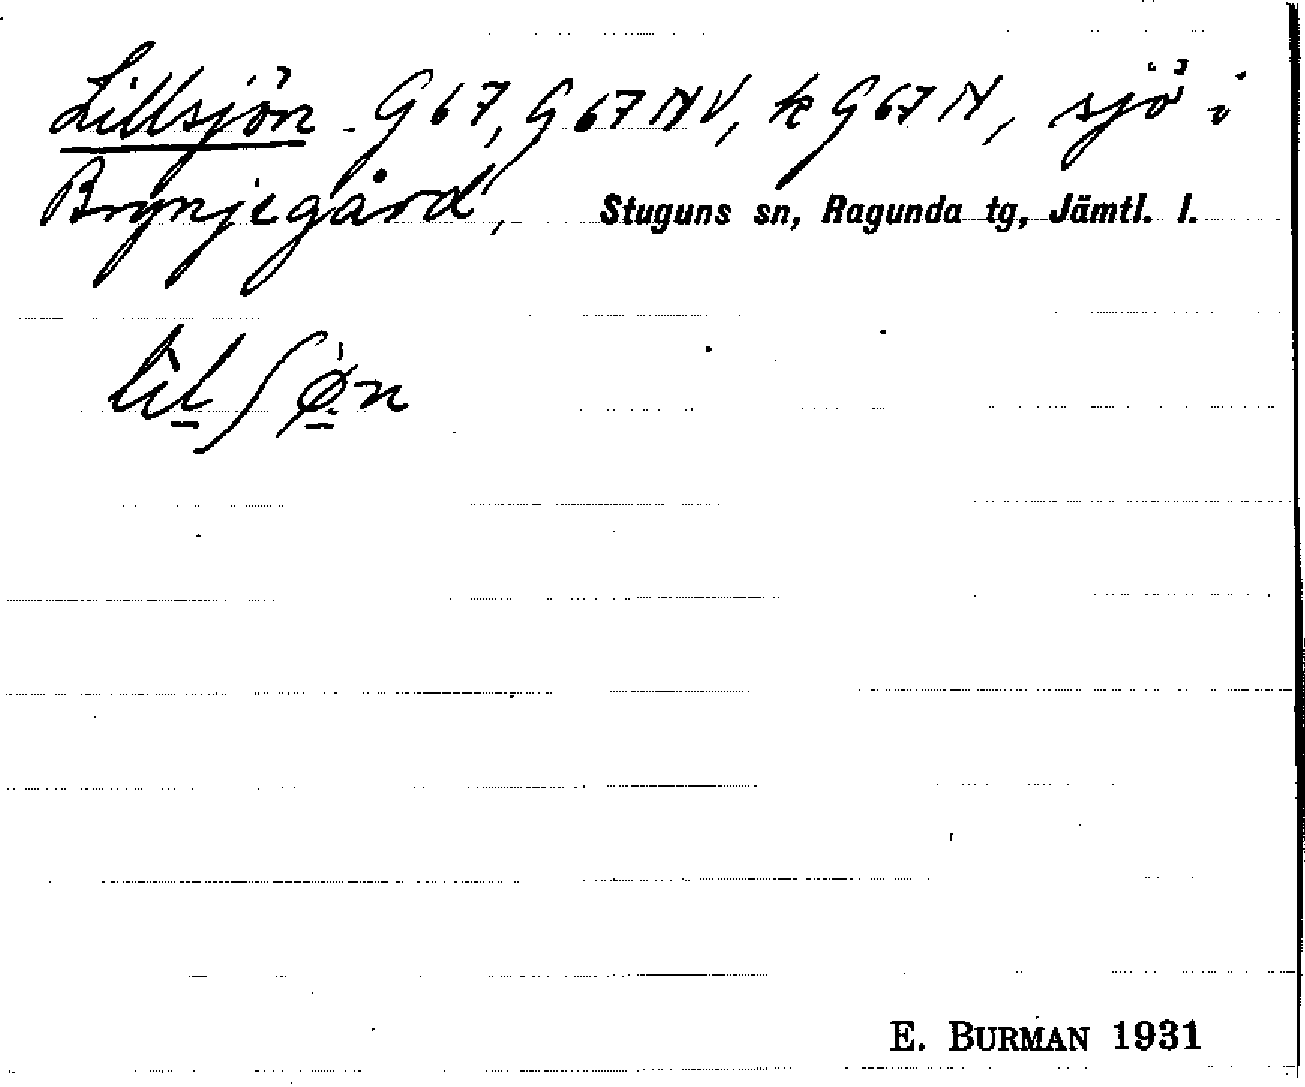 Lillsjön G 67, G 67 NV, k G 67 N, sjö i
Brynjegård, Stuguns sn, Ragunda tg, Jämtl. l.
lìl ʃø̀n
E. BURMAN 1931